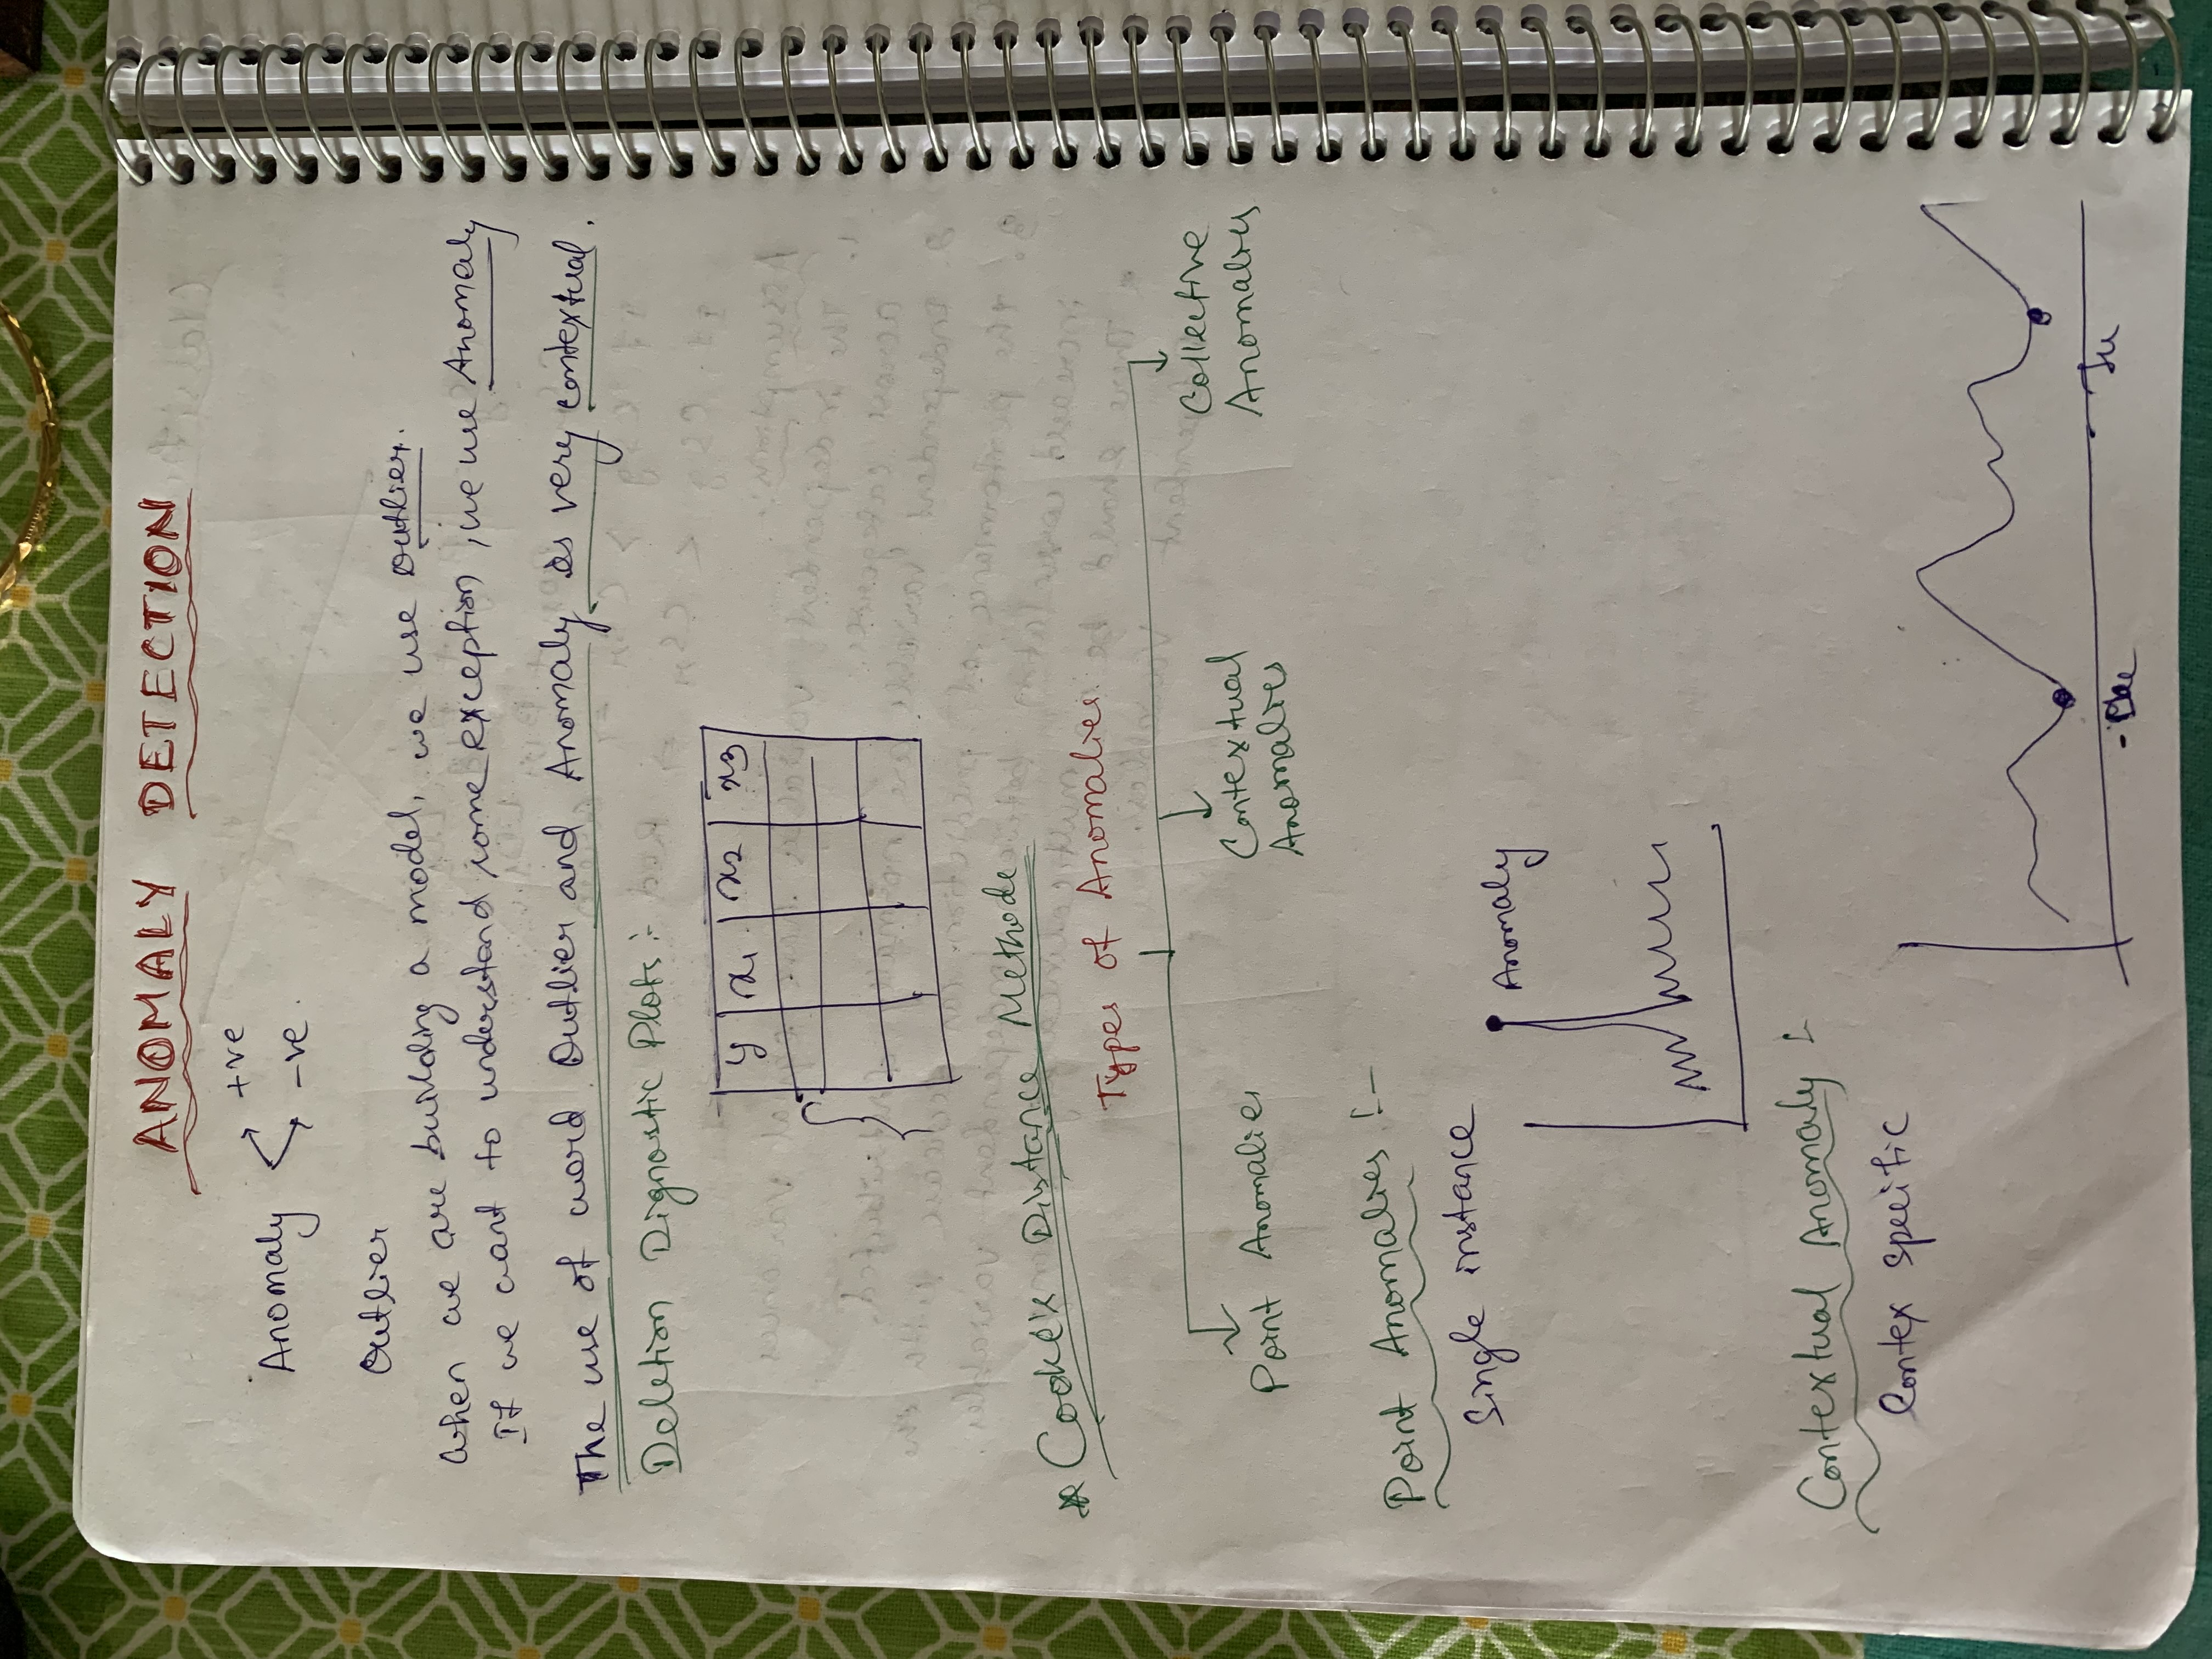 ANOMALY DETECTION
Anomaly
+ve
-ve.
Outlier
When we are building a model, we use outlier.
If we want to understand some exception, we use Anomaly
The use of word Outlier and Anomaly is very contextual.
Deletion Dignostic Plots :-
y x1 x2 x3
* Cooke's Distance Methode
Types of Anomalies
Point Anomalies
Contextual
Anomalies
Collective
Anomalies
Point Anomalies :-
Single instance
Anomaly
Contextual Anomaly :-
Contex specific